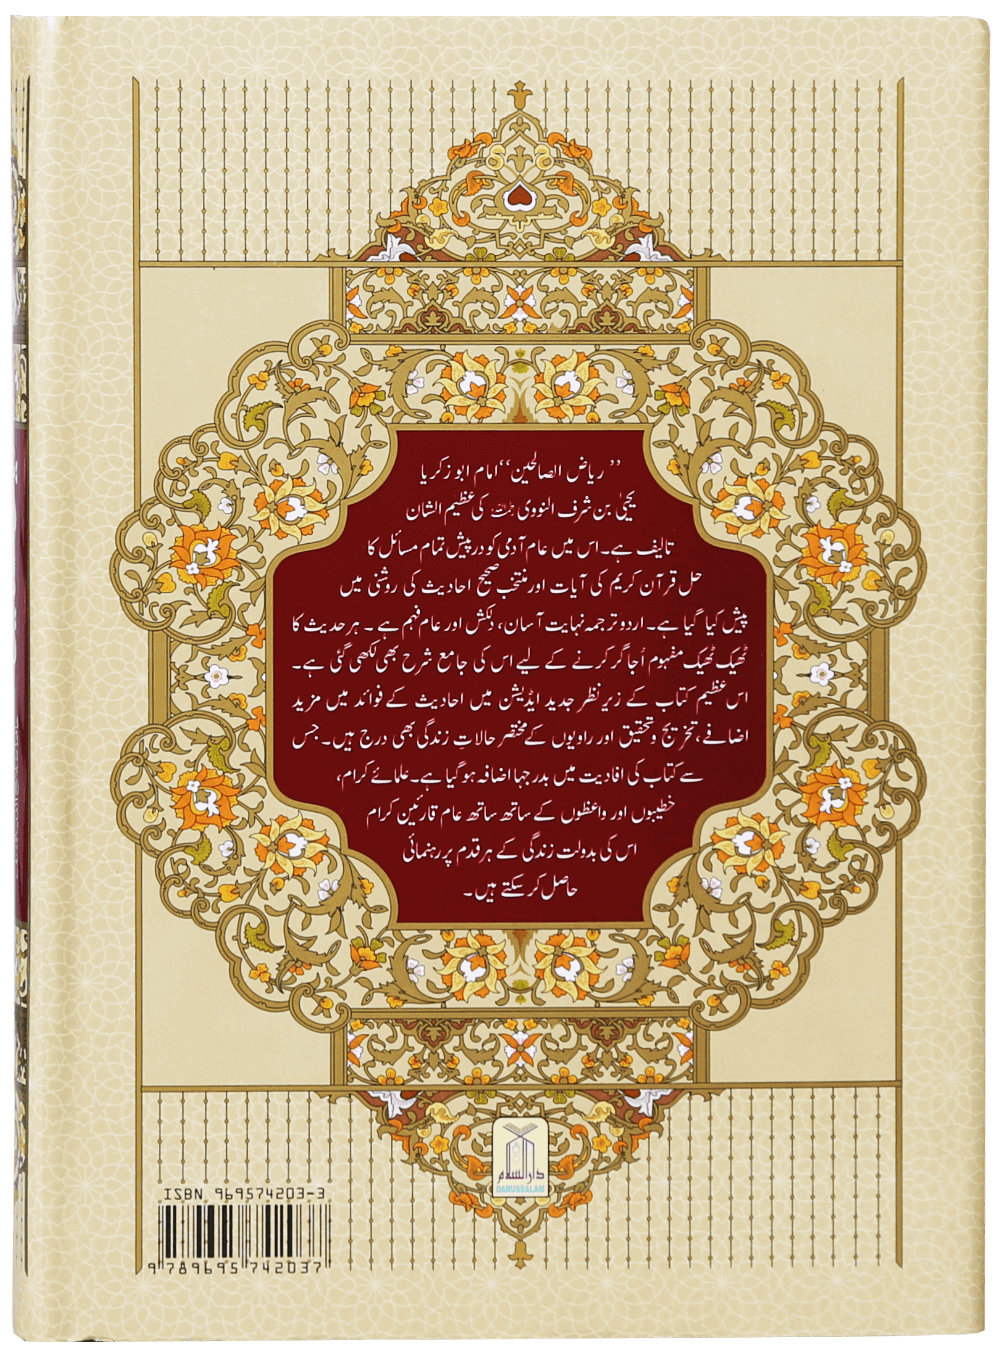 ”ریاض الصالحین“ امام ابو زکریا
یحییٰ بن شرف النووی رحمہ اللہ کی عظیم الشان
تالیف ہے۔ اس میں عام آدمی کو درپیش تمام مسائل کا
حل قرآن کریم کی آیات اور منتخب صحیح احادیث کی روشنی میں
پیش کیا گیا ہے۔ اردو ترجمہ نہایت آسان، دلکش اور عام فہم ہے۔ ہر حدیث کا
ٹھیک ٹھیک مفہوم اُجاگر کرنے کے لیے اس کی جامع شرح بھی لکھی گئی ہے۔
اس عظیم کتاب کے زیر نظر جدید ایڈیشن میں احادیث کے فوائد میں مزید
اضافے، تخریج و تحقیق اور راویوں کے مختصر حالاتِ زندگی بھی درج ہیں۔ جس
سے کتاب کی افادیت میں بدرجہا اضافہ ہو گیا ہے۔ علمائے کرام،
خطیبوں اور واعظوں کے ساتھ ساتھ عام قارئین کرام
اس کی بدولت زندگی کے ہر قدم پر رہنمائی
حاصل کر سکتے ہیں۔
دارالسلام
DARUSSALAM
ISBN 969574203-3
9 789695 742037